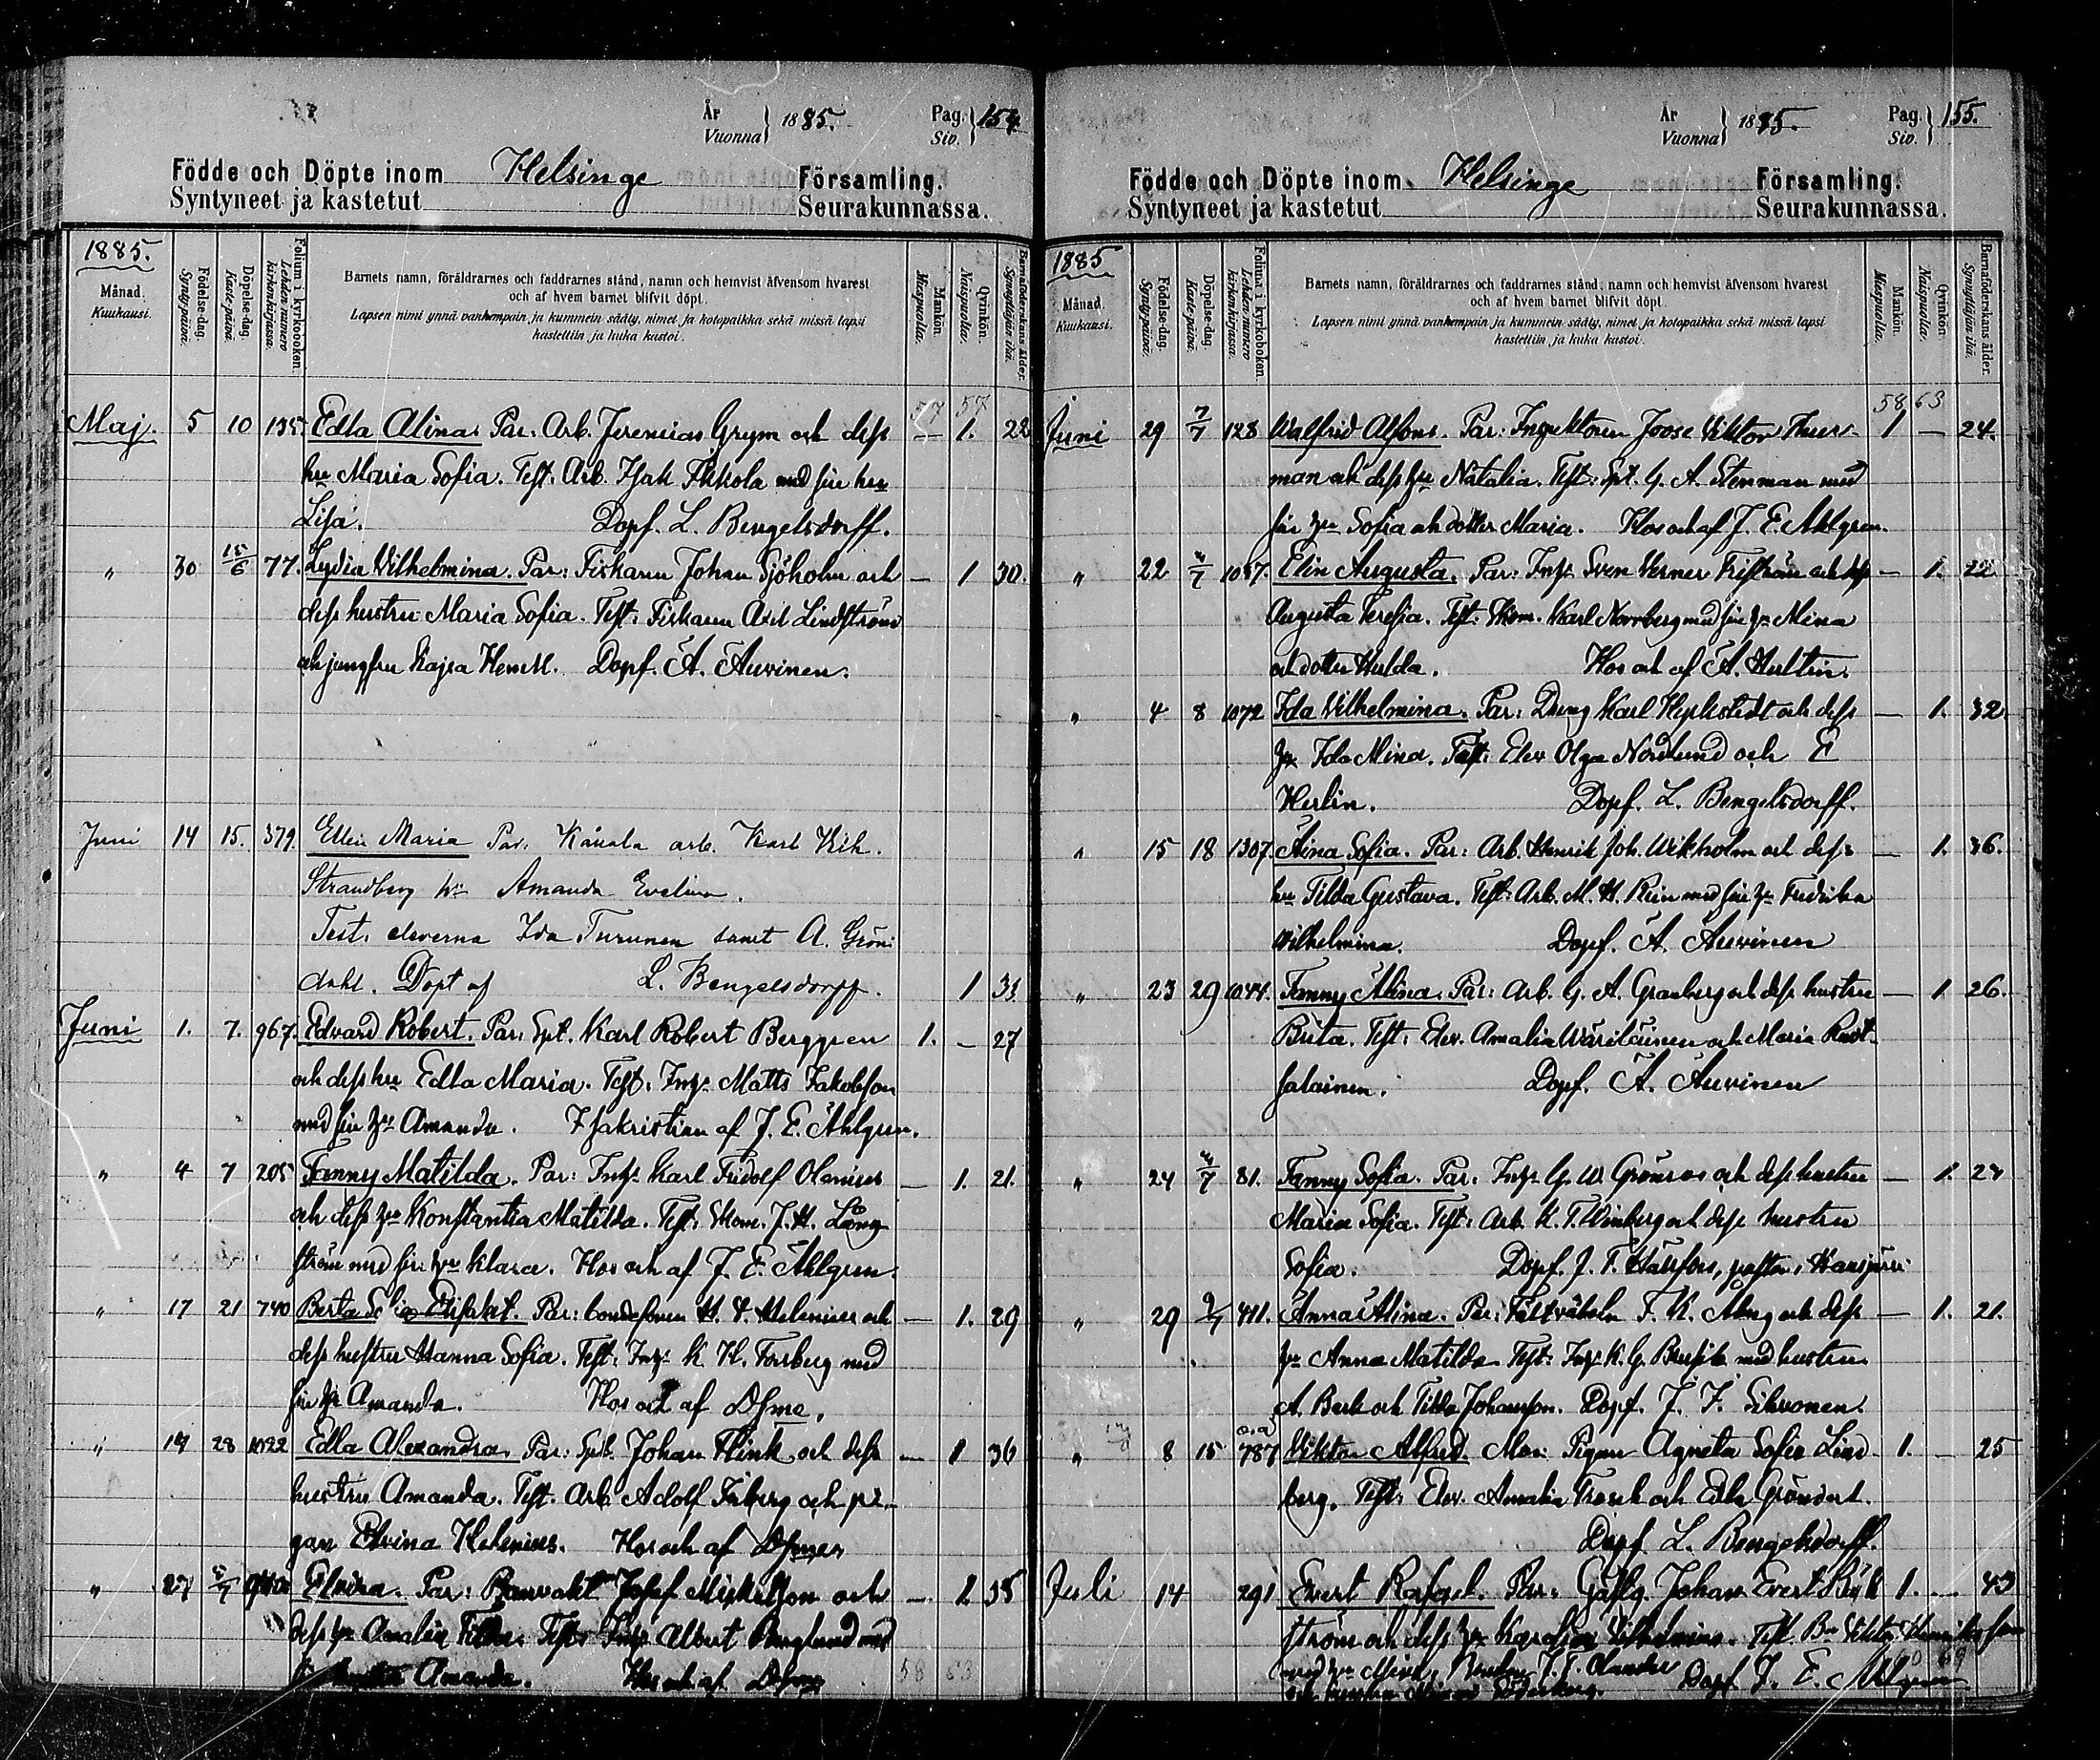 År
Vuonna } 1885.
Pag.
Siv. } 154
Födde och Döpte inom Helsinge Församling.
Syntyneet ja kastetut Seurakunnassa.
1885.
Månad.
Kuukausi.
Födelse-dag.
Syntypäivä.
Döpelse-dag.
Kaste-päivä.
Folium i kyrkoboken.
Lehden numero kirkonkirjassa.
Barnets namn, föräldrarnes och faddrarnes stånd, namn och hemvist äfvensom hvarest
och af hvem barnet blifvit döpt.
Lapsen nimi ynnä vanhempain ja kummein sääty, nimet ja kotopaikka sekä missä lapsi
kastettiin ja kuka kastoi.
Mankön.
Miespuolia.
Qvinkön.
Naispuolia.
Barnaföderskans ålder.
Synnyttäjän ikä.
57 57
Maj. 5 10 135 Edla Alina. Par. Arb. Jeremias Grym och dess — 1. 28
hu Maria Sofia. Test. Arb. Isak Ikkola med sin hu
Lisa. Döpf. L. Bengelsdorff.
" 30 15/6 77. Lydia Vilhelmina. Par: Fiskaren Johan Sjöholm och — 1 30.
dess hustru Maria Sofia. Test: Fiskaren Axel Lindström
och jungfru Kajsa Dopf. A. Auvinen.
Juni 14 15. 379. Ellin Maria Par. arb. Karl
Strandberg hu Amanda Evelina.
Test. eleverna Ida Turunen samt A. Grön
dahl. Döpt af L. Bengelsdorff. 1 31
Juni 1. 7. 967. Edvard Robert. Par. Spt. Karl Robert Berggren 1. — 27
och dess hu Edla Maria. Test. Inh. Matts Jakobsson
med sin hu Amanda. I sakristian af J. E. Ahlgren.
" 4 7 205 Fanny Matilda. Par: Inh. Karl Fridolf Olenius — 1. 21.
och dess hu Konstantia Matilda. Test: Skom. J. H. Lång
ström med sin hu Klara. Hos och af J. E. Ahlgren.
" 17 21 740 Berta Par: H. V. Helenius och — 1. 29
dess hustru Hanna Sofia. Test: Inh. K. H. Forsberg med
sin hu Amanda. Hos och af Dsme.
" 19 28 1022 Edla Alexandra. Par: Spt. Johan Flink och dess — 1 36
hustru Amanda. Test. Arb. Adolf och pi-
gan Elvina Helenius. Hos och af Dsme
" 27 5/7 Elvina. Par: Banvakt Josef Mickelsson och — 1. 35
dess hu Amalia Test: Inh. Albert Berglund med
Amanda. Hos och af Dsme
58 63
År
Vuonna } 1885.
Pag.
Siv. } 155.
Födde och Döpte inom Helsinge Församling.
Syntyneet ja kastetut Seurakunnassa.
1885
Månad.
Kuukausi.
Födelse-dag.
Syntypäivä.
Döpelse-dag.
Kaste-päivä.
Folium i kyrkoboken.
Lehden numero kirkonkirjassa.
Barnets namn, föräldrarnes och faddrarnes stånd, namn och hemvist äfvensom hvarest
och af hvem barnet blifvit döpt.
Lapsen nimi ynnä vanhempain ja kummein sääty, nimet ja kotopaikka sekä missä lapsi
kastettiin ja kuka kastoi.
Mankön.
Miespuolia.
Qvinkön.
Naispuolia.
Barnaföderskans ålder.
Synnyttäjän ikä.
58 63
Juni 29 7/7 128 Walfrid Alfons. Par: Inspektoren Joose Viktor Thure- 1 — 24.
man och dess hu Natalia. Test: Spt. G. A. Stenman med
sin hu Sofia och dotter Maria. Hos och af J. E. Ahlgren.
" 22 1057. Elin Augusta. Par: Inh. Sven Verner Friström och dess — 1. 22
Augusta Teresia. Test: Skom. Karl Norrberg med sin hu Mina
och dotter Hulda. Hos och af A. Hultin.
" 4 8 1072 Ida Vilhelmina. Par: Dreng Karl och dess — 1. 32
hu Ida Mina. Test: Elev Olga Nordlund och E
Herlin. Dopf. L. Bengelsdorff.
" 15 18 1307. Aina Sofia. Par: Arb. Henrik Joh. Wikholm och dess — 1. 36.
hu Tilda Gustava. Test: Arb. M. H. med sin hu Fredrika
Wilhelmina. Dopf. A. Auvinen
" 23 29 1044. Fanny Alina. Par: Arb. G. A. Granberg och dess hustru — 1 26.
Brita. Test: Elev. Amalia Wäriläinen och Maria
salainen. Dopf. A. Auvinen
" 24 81. Fanny Sofia. Par: Inh. G. W. Grönros och dess hustru — 1. 27
Maria Sofia. Test: Arb. K. F. Winberg och dess hustru
Sofia. Dopf. J. F.
" 29 411. Anna Alina. Par: F. K. och dess — 1. 21.
hu Anna Matilda Test: Inh. K. G. med hustru
A. Bark och Tilda Johansson. Dopf. J. F. Sihvonen.
o.ä
" 8 15 787 Viktor Alfred. Mor: Pigan Agneta Sofia Lind- 1. — 25
berg. Test: Elev. Amalia Trosch och Edla Gröndahl.
Dopf. L. Bengelsdorff.
Juli 14 291 Evert Rafael. Par: Johan Evert 1. — 43
ström och dess hu Karolina Vilhelmina. Test. Bn Viktor Henriksson
med hu Mina, Dopf. J. E. Ahlgren